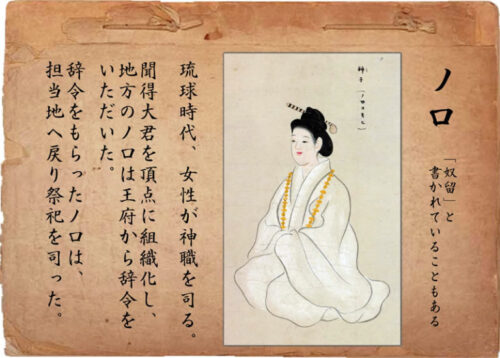 ノロ
「奴留」と
書かれていることもある
神子
琉球時代、女性が神職を司る。
聞得大君を頂点に組織化し、
地方のノロは王府から辞令を
いただいた。
辞令をもらったノロは、
担当地へ戻り祭祀を司った。